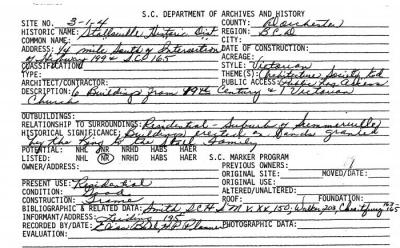 S.C. DEPARTMENT OF ARCHIVES AND HISTORY
SITE NO. 3-1-4 COUNTY: Dorchester
HISTORIC NAME: Stallsville Historic Dist REGION: B.C.D
COMMON NAME: CITY:
ADDRESS: 1/4 mile South of Intersection DATE OF CONSTRUCTION:
of Hwy 199 & SCD 165 ACREAGE:
CLASSIFICATION: STYLE: Victorian
TYPE: THEME(S): Architecture, Society
ARCHITECT/CONTRACTOR: PUBLIC ACCESS:
DESCRIPTION: 6 Buildings from 19th Century & 1 Victorian
Church
OUTBUILDINGS:
RELATIONSHIP TO SURROUNDINGS: Residential - Suburb of Summerville
HISTORICAL SIGNIFICANCE: Buildings erected on lands granted
by the King to the Stall Family
POTENTIAL: NHL NR NRHD HABS HAER S.C. MARKER PROGRAM
LISTED: NHL NR NRHD HABS HAER PREVIOUS OWNERS:
OWNER/ADDRESS: ORIGINAL SITE: MOVED/DATE:
ORIGINAL USE:
PRESENT USE: Residential ALTERED/UNALTERED:
CONDITION: Good ROOF: FOUNDATION:
CONSTRUCTION: Frame
BIBLIOGRAPHIC & RELATED DATA: Smith, S.C.H.&G.M. V. XX, 150;
INFORMANT/ADDRESS: 195
RECORDED BY/DATE: Planner PHOTOGRAPHIC DATA:
EVALUATION: